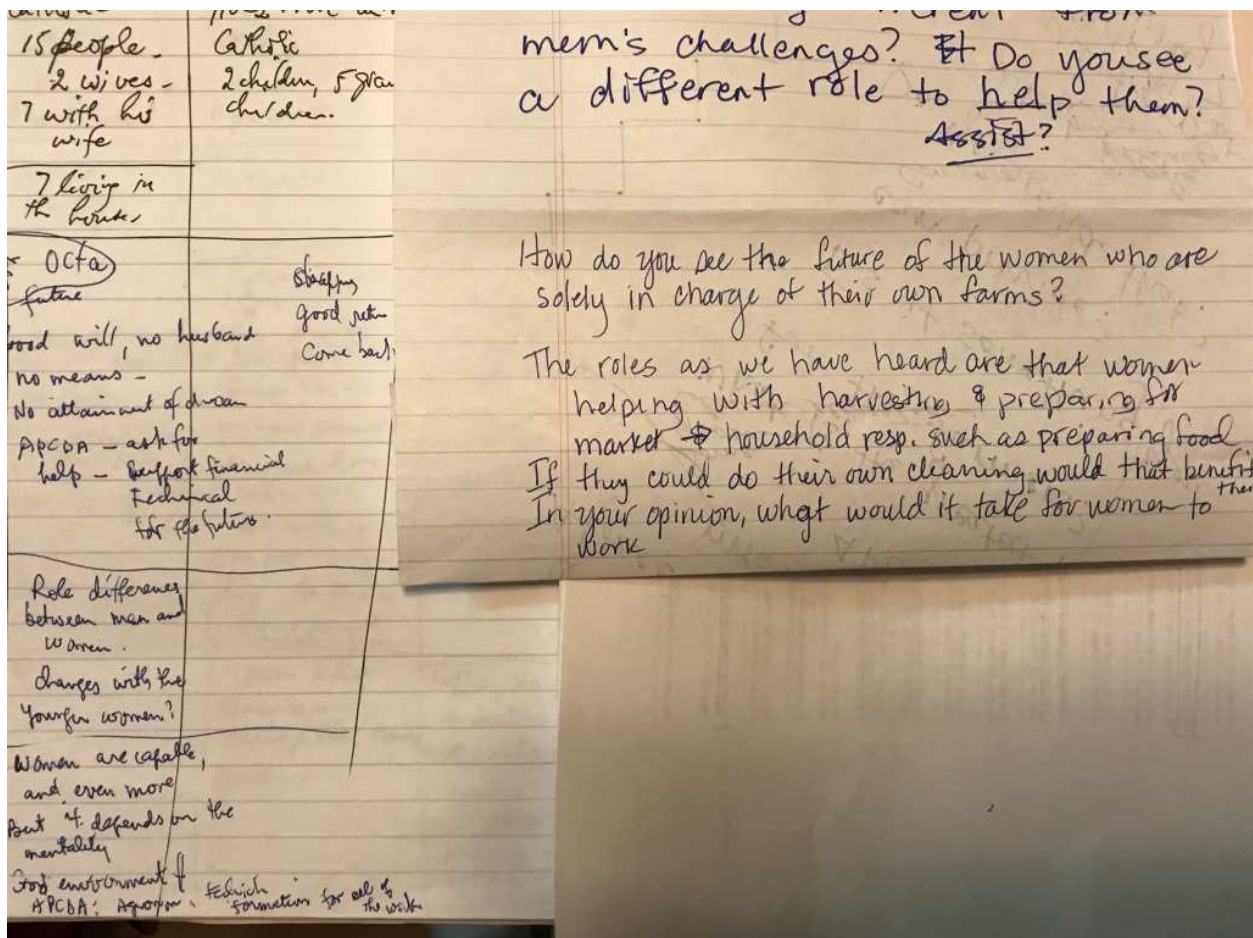 15 people -
2 wives -
7 with his
wife
7 living in
the house
Catholic
2 children, 5
children.
Octa
future
will, no husband
no means -
No attainment of dream
APCDA - ask for
help - support financial
Technical
for the future.
good
Come back
Role difference
between man and
women.
changes with the
younger women?
Women are capable,
and even more
But it depends on the
mentality
Good environment
APCDA:
formation for all of
the work
from
mem's challenges? Do you see
a different role to help them?
Assist?
How do you see the future of the women who are
solely in charge of their own farms?
The roles as we have heard are that women
helping with harvesting & preparing for
market household resp. such as preparing food
If they could do their own cleaning would that benefit
them
In your opinion, what would it take for women to
work